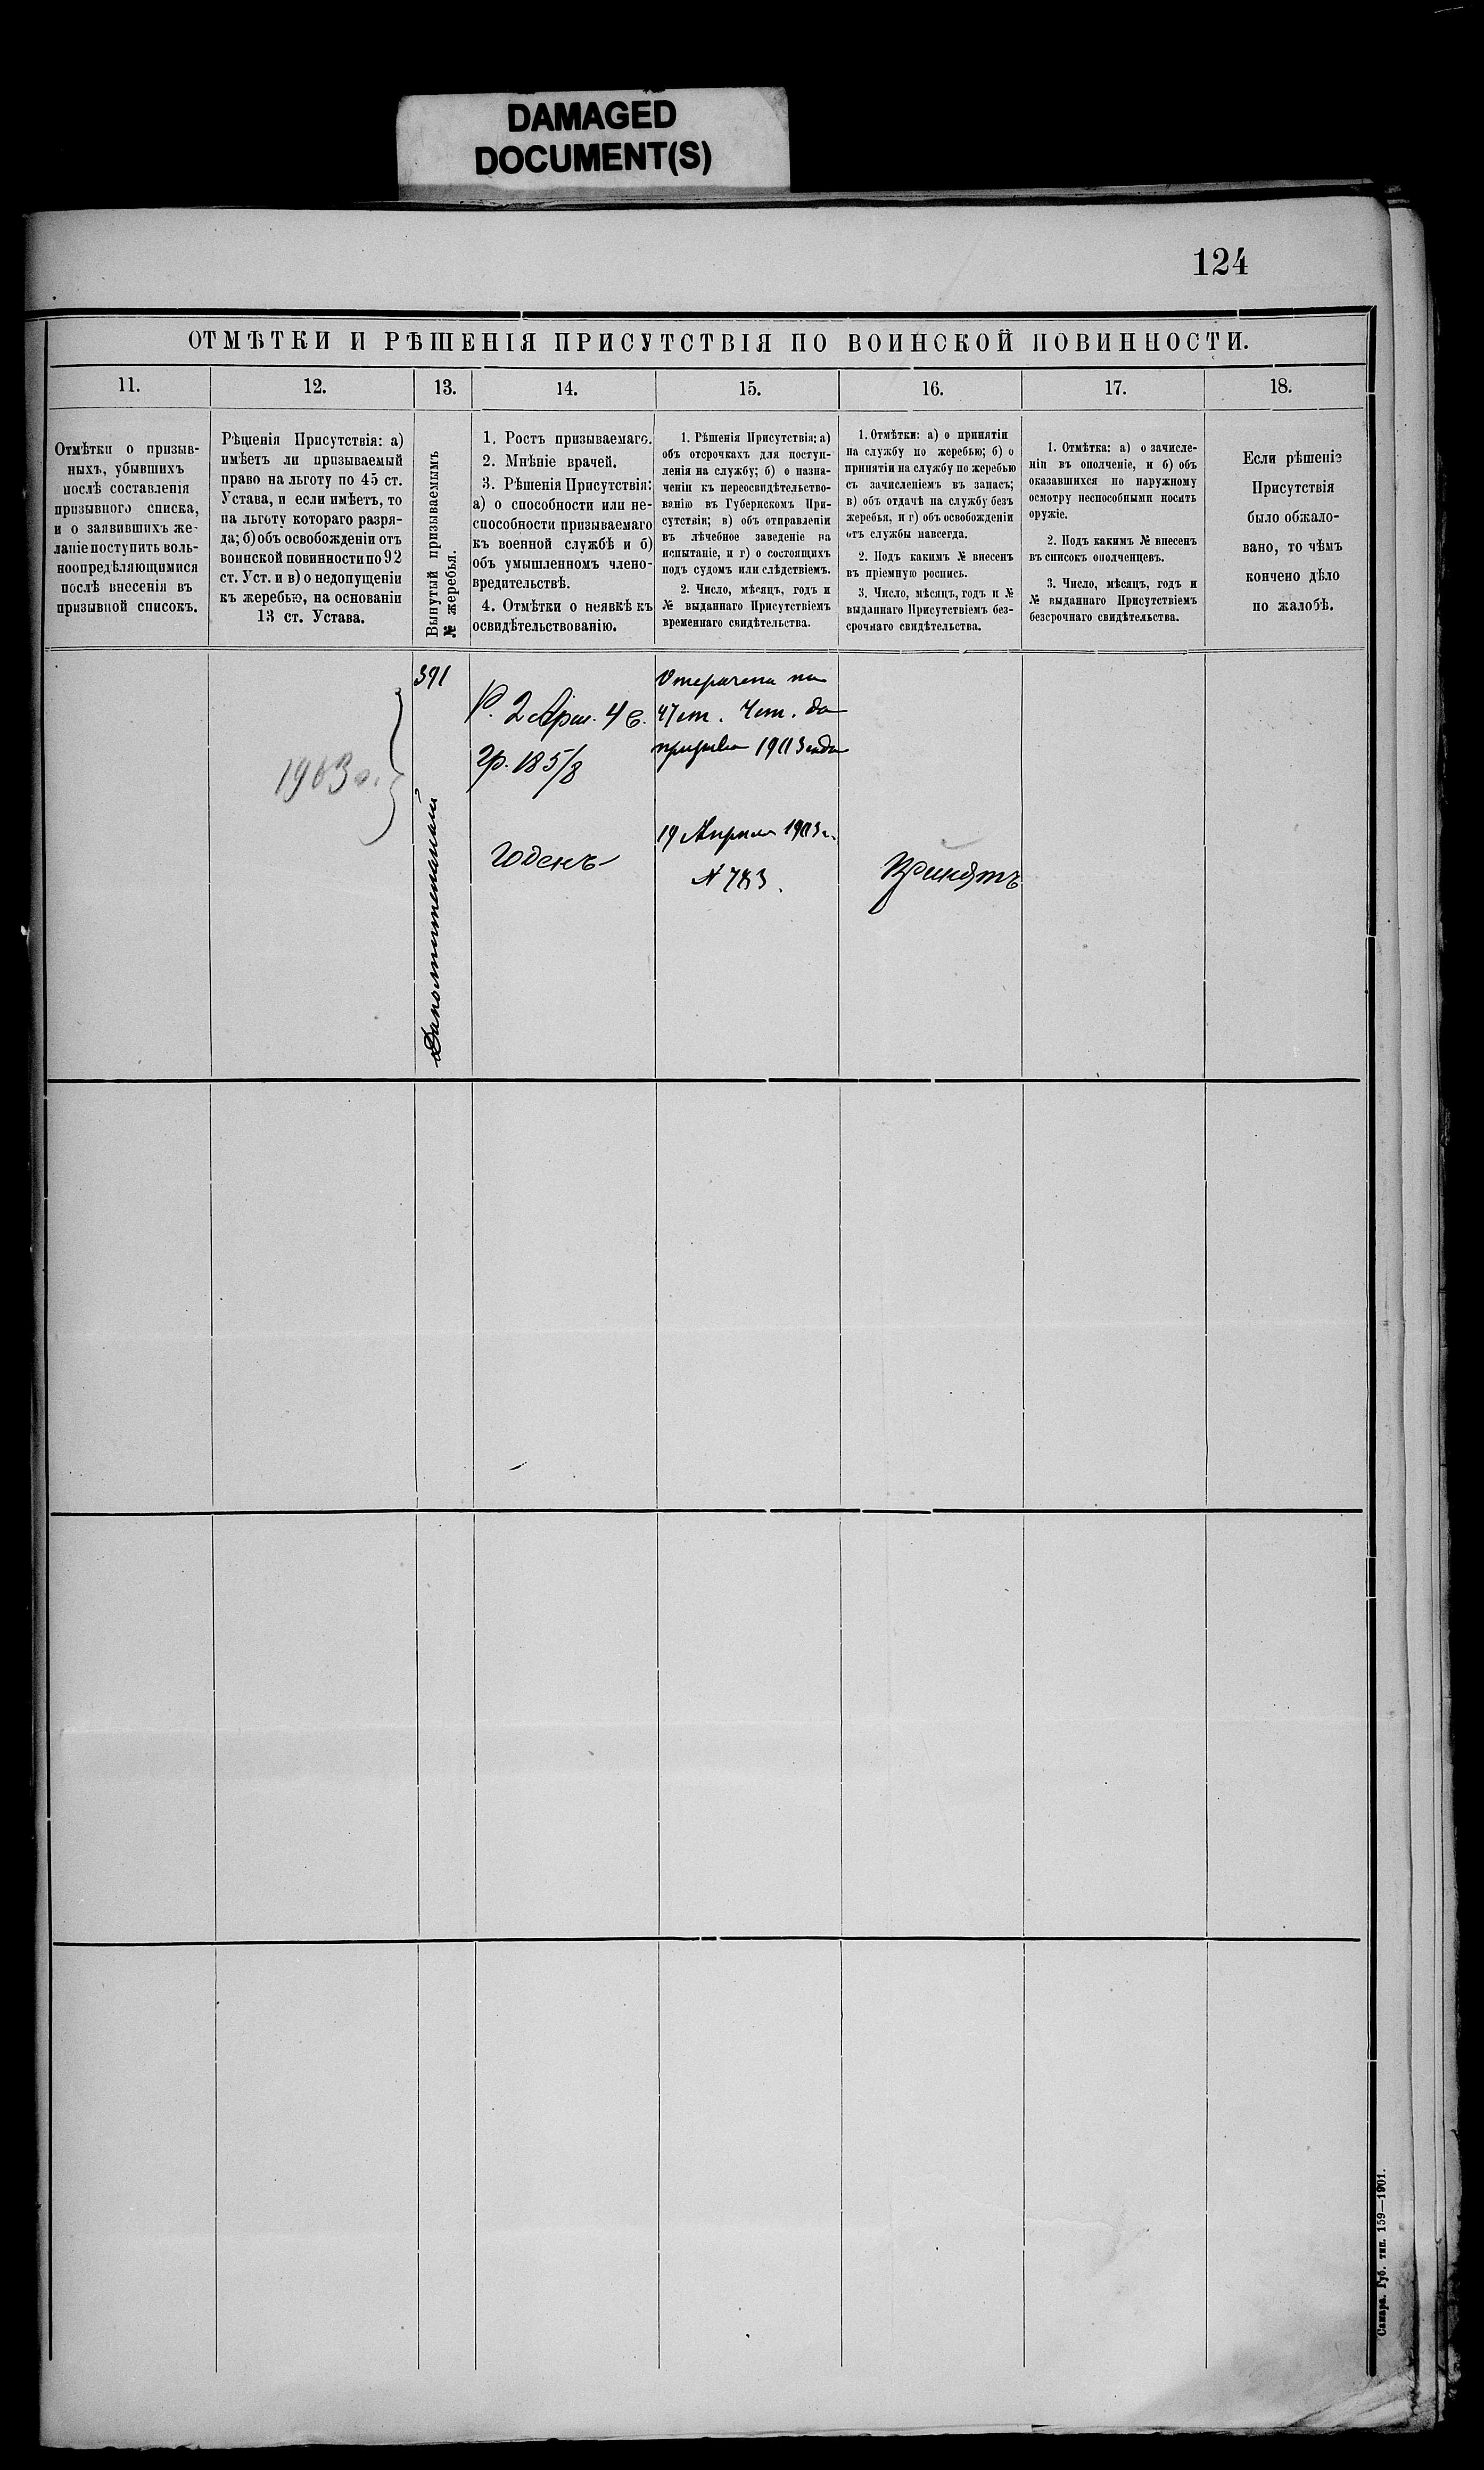 DAMAGED
DOCUMENT(S)
124
ОТМѢТКИ И РѢШЕНІЯ ПРИСУТСТВІЯ ПО ВОИНСКОЙ ПОВИННОСТИ.
11.
12.
13.
14.
15.
16.
17.
18.
Отмѣтки о призыв-
ныхъ, убывшихъ
послѣ составленія
призывного списка,
и о заявившихъ же-
ланіе поступить воль-
ноопредѣляющимися
послѣ внесенія въ
призывной списокъ.
Рѣшенія Присутствія: а)
имѣетъ ли призываемый
право на льготу по 45 ст.
Устава, и если имѣетъ, то
на льготу котораго разря-
да; б) объ освобожденіи отъ
воинской повинности по 92
ст. Уст. и в) о недопущеніи
къ жеребью, на основаніи
13 ст. Устава.
Вынутый призываемымъ
№ жеребья.
1. Ростъ призываемаго.
2. Мнѣніе врачей.
3. Рѣшенія Присутствія:
а) о способности или не-
способности призываемаго
къ военной службѣ и б)
объ умышленномъ члено-
вредительствѣ.
4. Отмѣтки о неявкѣ къ
освидѣтельствованію.
1. Рѣшенія Присутствія: а)
объ отсрочкахъ для поступ-
ленія на службу; б) о назна-
ченіи къ переосвидѣтельство-
ванію въ Губернскомъ При-
сутствіи; в) объ отправленіи
въ лѣчебное заведеніе на
испытаніе, и г) о состоящихъ
подъ судомъ или слѣдствіемъ.
2. Число, мѣсяцъ, годъ и
№ выданнаго Присутствіемъ
временнаго свидѣтельства.
1. Отмѣтки: а) о принятіи
на службу по жеребью; б) о
принятіи на службу по жеребью
съ зачисленіемъ въ запасъ;
в) объ отдачѣ на службу безъ
жеребья, и г) объ освобожденіи
отъ службы навсегда.
2. Подъ какимъ № внесенъ
въ пріемную роспись.
3. Число, мѣсяцъ, годъ и №
выданнаго Присутствіемъ без-
срочнаго свидѣтельства.
1. Отмѣтка: а) о зачисле-
ніи въ ополченіе, и б) объ
оказавшихся по наружному
осмотру неспособными носить
оружіе.
2. Подъ какимъ № внесенъ
въ списокъ ополченцевъ.
3. Число, мѣсяцъ, годъ и
№ выданнаго Присутствіемъ
безсрочнаго свидѣтельства.
Если рѣшеніе
Присутствія
было обжало-
вано, то чѣмъ
кончено дѣло
по жалобѣ.
1903 г.
391
Р. 2 Арш. 4 в.
гр. 18 5/8
годенъ
Отсрочена по
47 ст. Уст. до
призыва 1903 года
19 Апрѣля 1903 г.
№ 783.
Принятъ
Самара. Губ. тип. 159—1901.